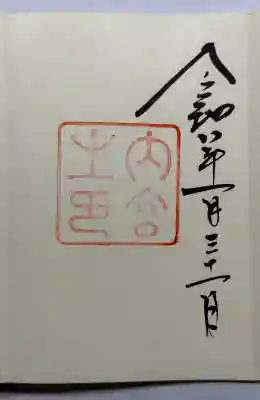 令和八年一月三十一日
内宮
之印